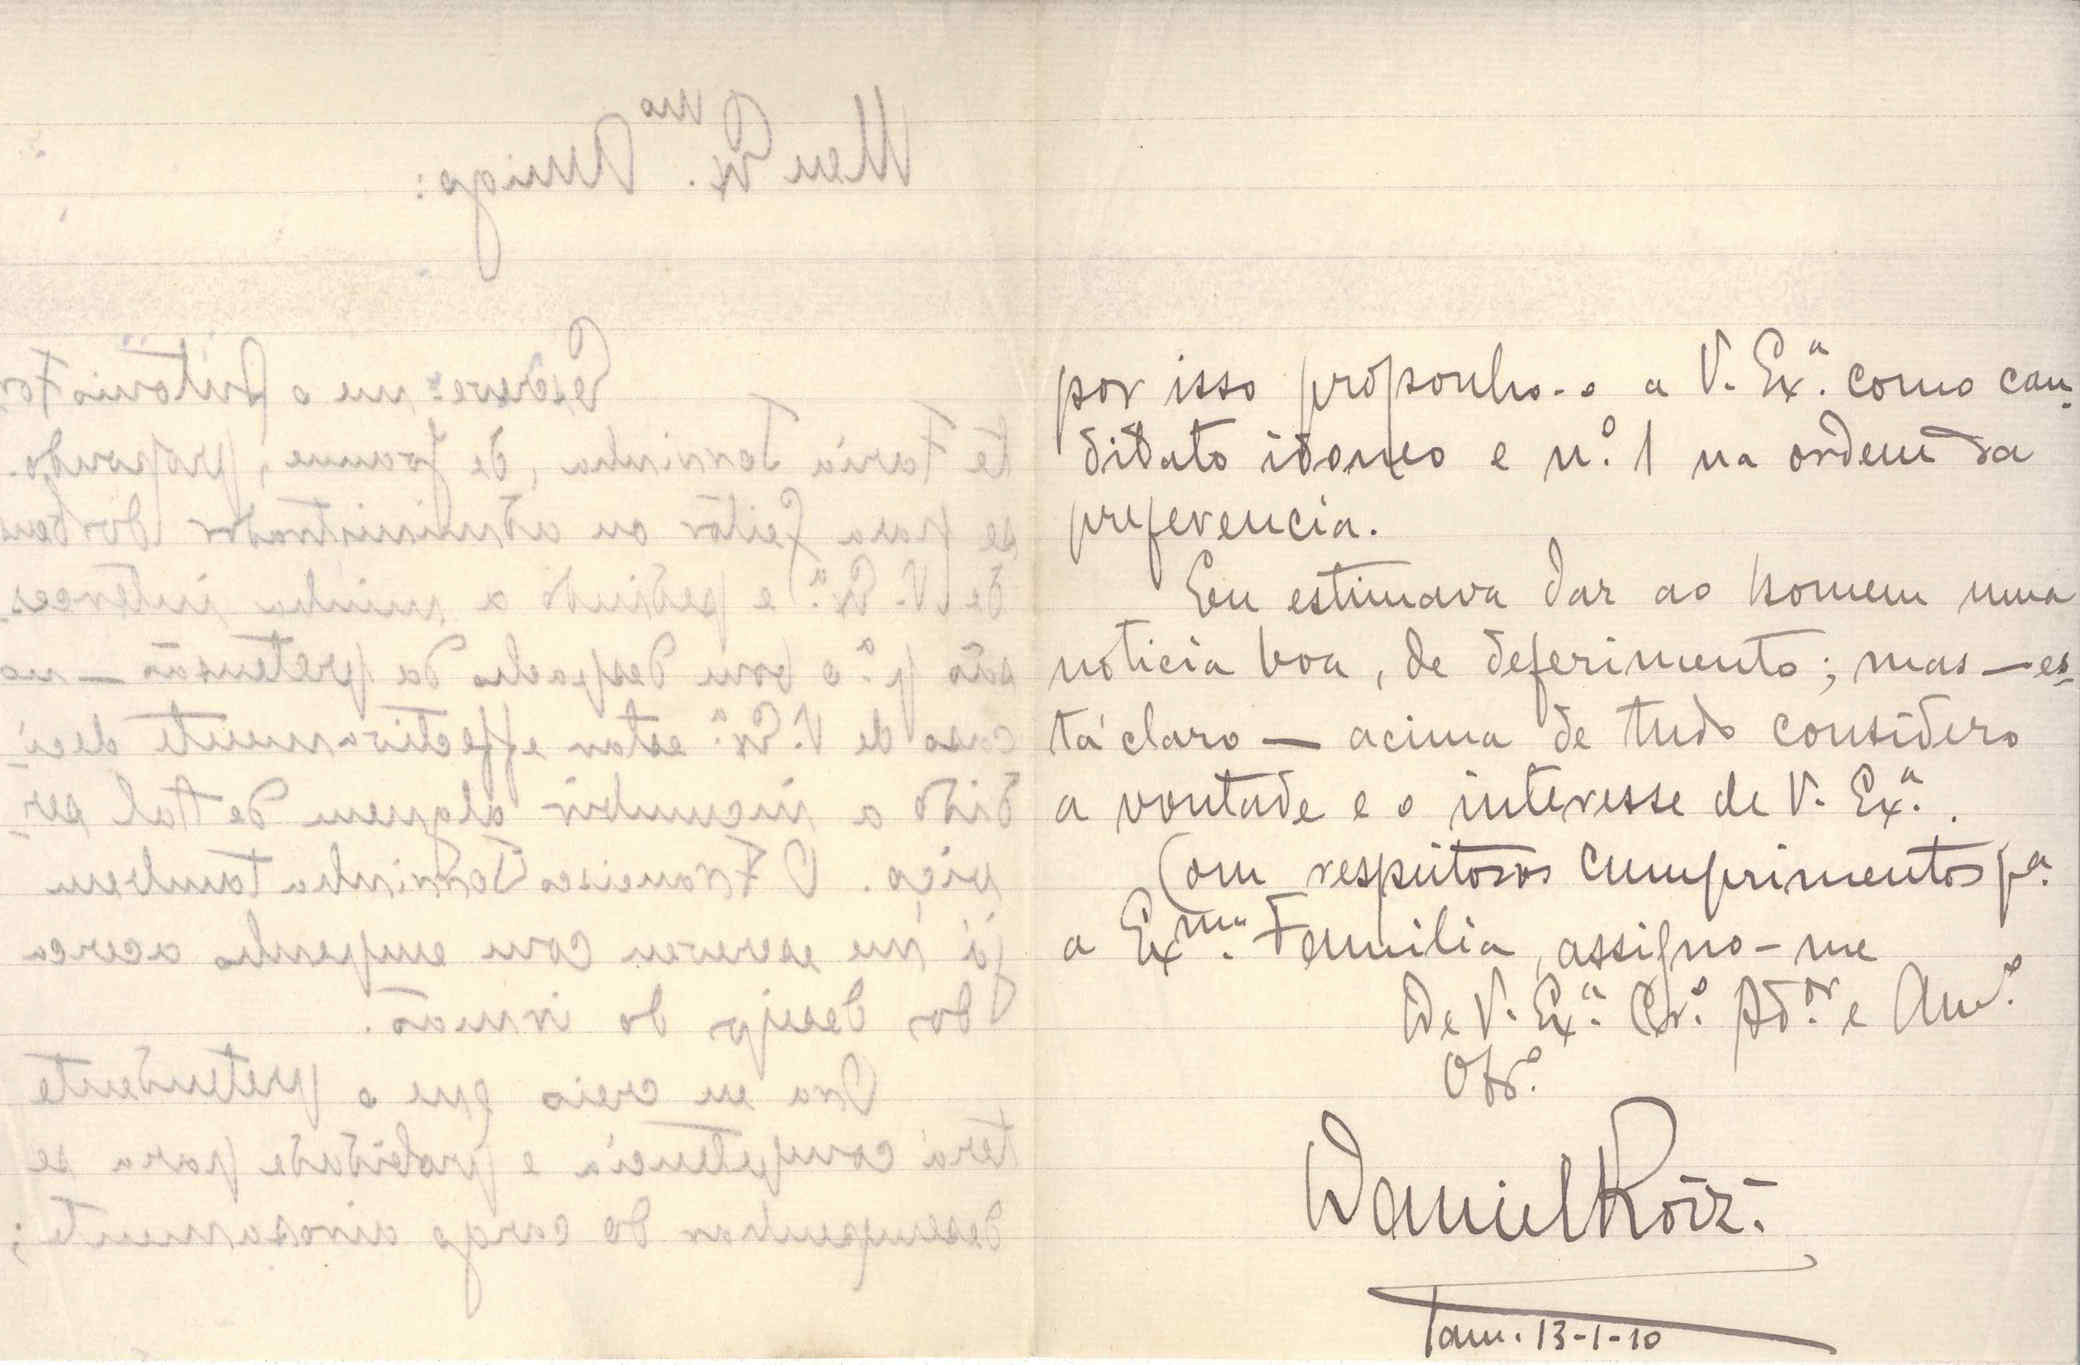 Meu Ex.mo Amigo:
Escreve-me o Antonio For-
te Faria Torrinha, de Joanne, propondo-
se para feitôr ou administrador dos bens
de V. Ex.ª e pedindo a minha interces-
são p.ª o bom despacho da pretensão — no
caso de V. Ex.ª estar effectivamente deci-
dido a incumbir alguem de tal ser-
viço. O Francisco Torrinha tambem
já me escreveu com empenho acerca
dos desejos do irmão.
Ora eu creio que o pretendente
terá competencia e probidade para se
desempenhar do cargo airosamente;
por isso proponho-o a V. Ex.ª como can-
didato idoneo e n.º 1 na ordem da
preferencia.
Eu estimava dar ao homem uma
noticia boa, de deferimento; mas — es-
tá claro — acima de tudo considero
a vontade e o interesse de V. Ex.ª.
Com respeitosos cumprimentos p.ª
a Ex.ma Familia, assigno-me
De V. Ex.ª Cr.º Ad.or e Am.º
Obr.º
Daniel Roiz.
Fam. 13-1-10